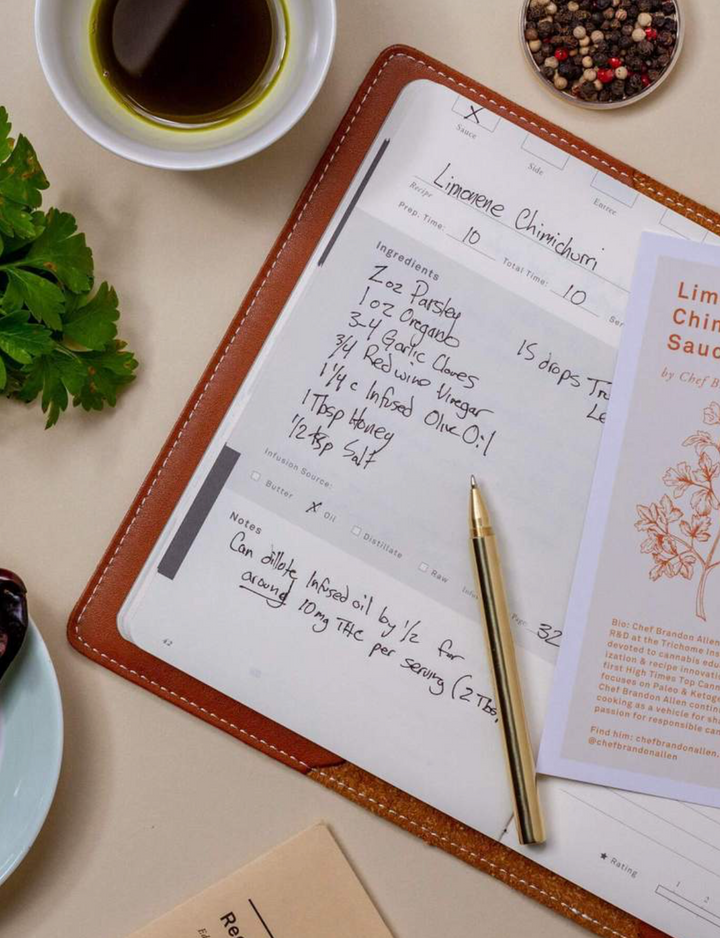 X
Sauce
Side
Entree
Limonene Chimichurri
Recipe
Prep. Time: 10 Total Time: 10 Ser
Ingredients
2oz Parsley
1oz Oregano
3-4 Garlic Cloves
3/4 Redwine Vinegar
1 1/4 c Infused Olive Oil
1 Tbsp Honey
1/2 tsp Salt
15 drops Tr
Le
Infusion Source:
Butter X Oil Distillate Raw Page 32
Notes
Can dillote Infused oil by 1/2 for
around 10mg THC per serving (2 Tbs
42
Lim
Chim
Sauc
by Chef B
Bio: Chef Brandon Allen
R&D at the Trichome Ins
devoted to cannabis edu
ization & recipe innovati
first High Times Top Can
focuses on Paleo & Ketog
Chef Brandon Allen contin
cooking as a vehicle for sh
passion for responsible can
Find him: chefbrandonallen.
@chefbrandonallen
★ Rating
1 2
Re